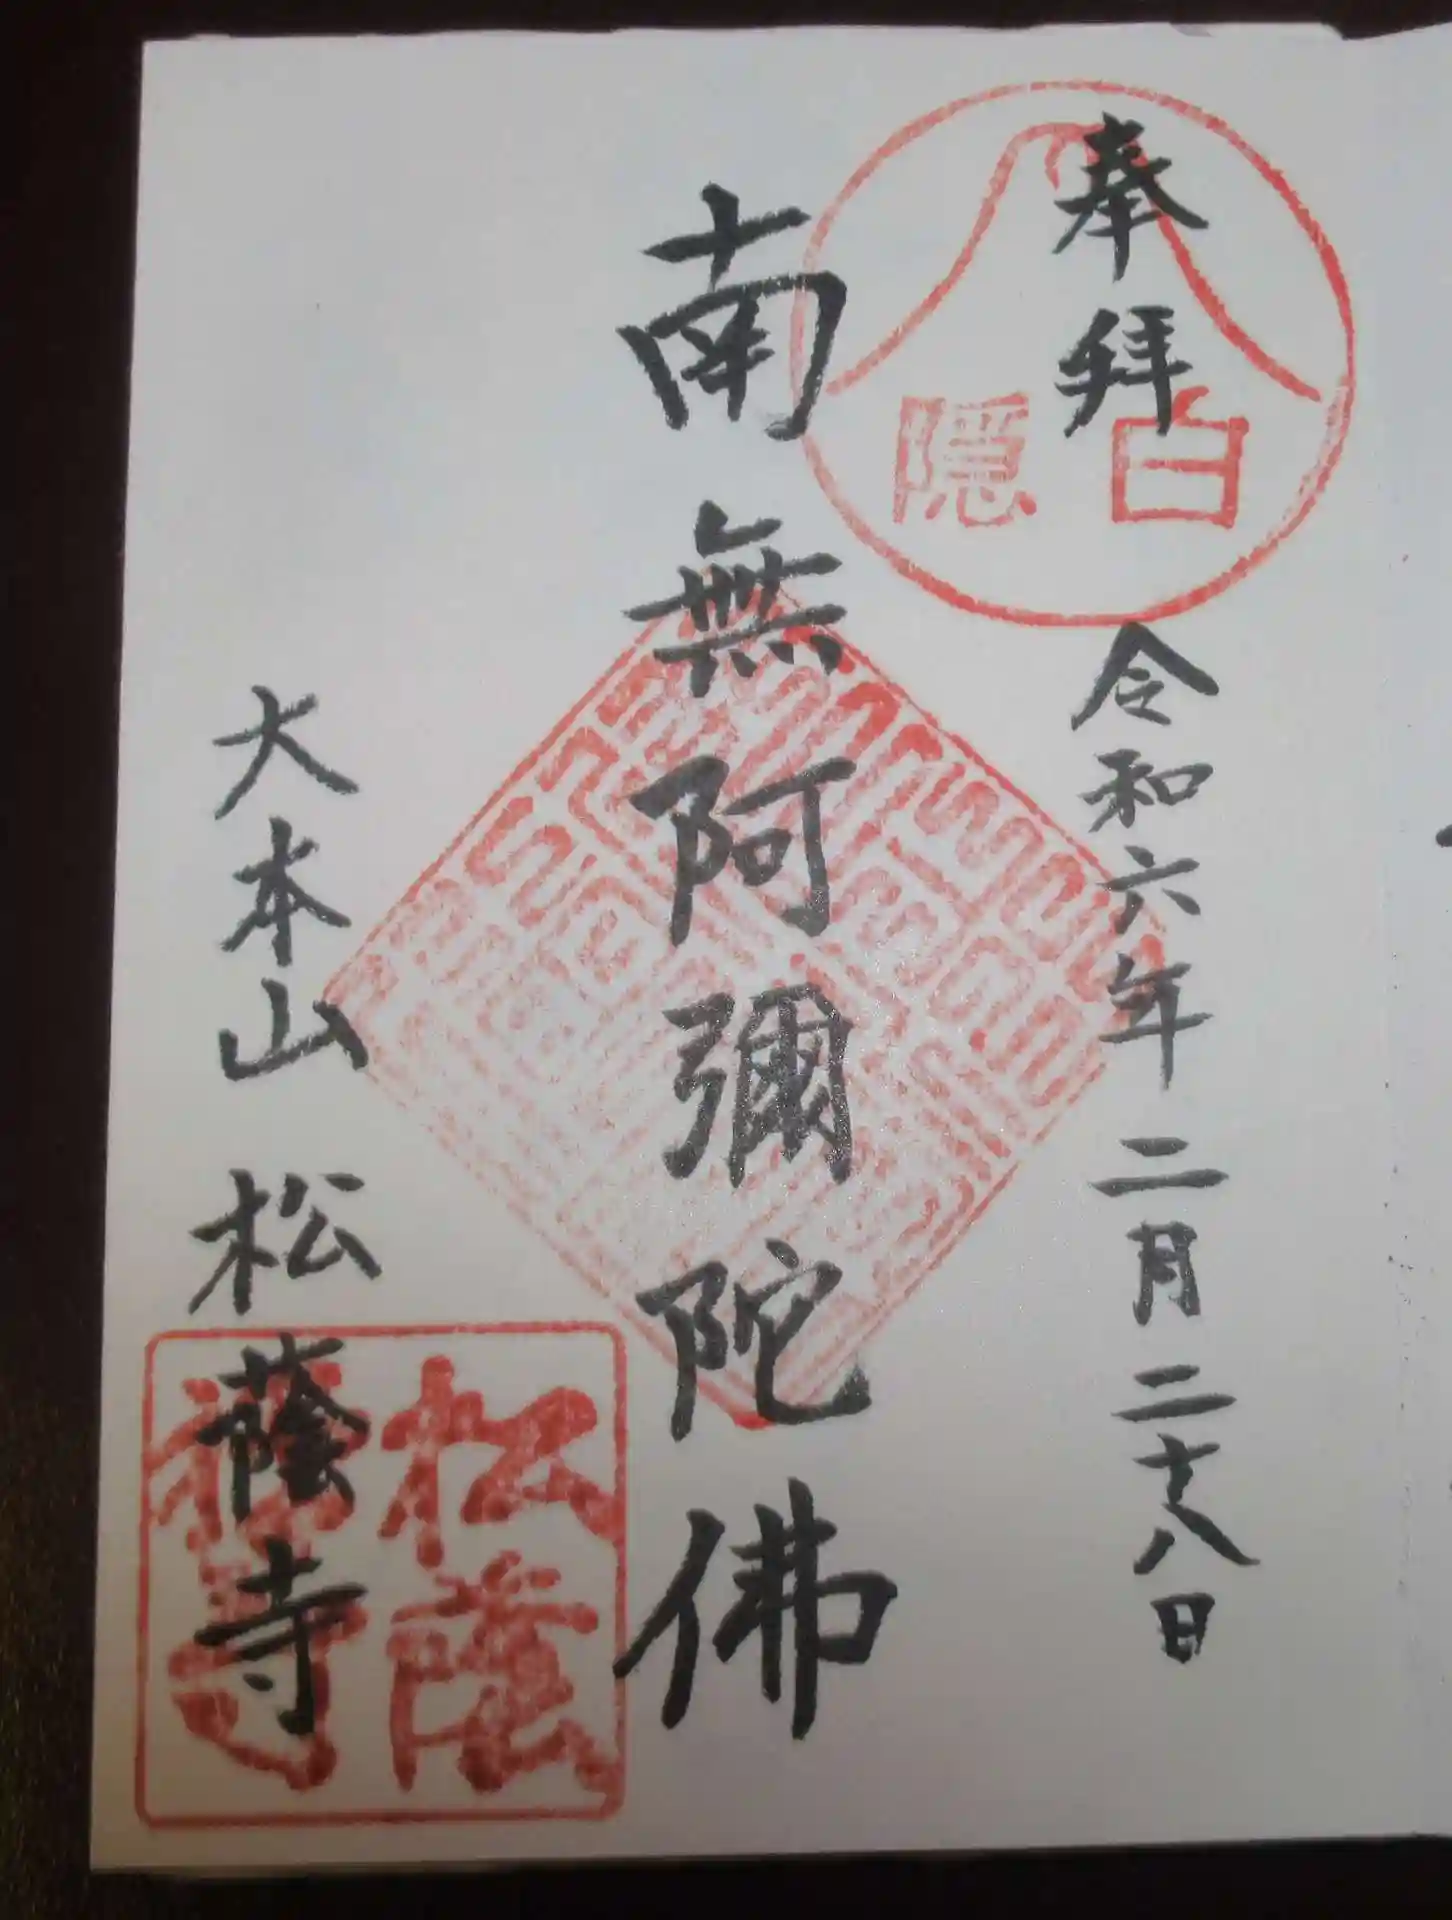 奉拜
白隱
令和六年二月二十八日
南無阿彌陀佛
大本山 松蔭寺
松蔭禅寺